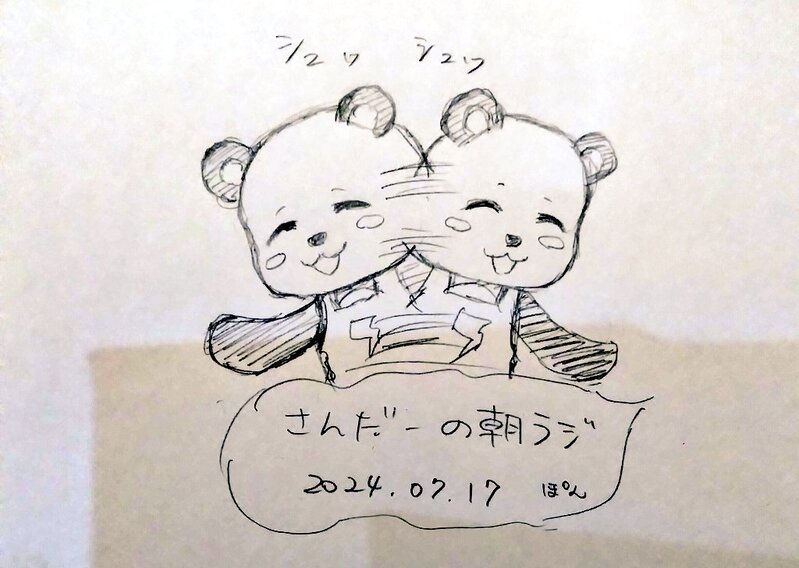 シュワ シュワ
さんだーの朝ラジ
2024.07.17 ぽん